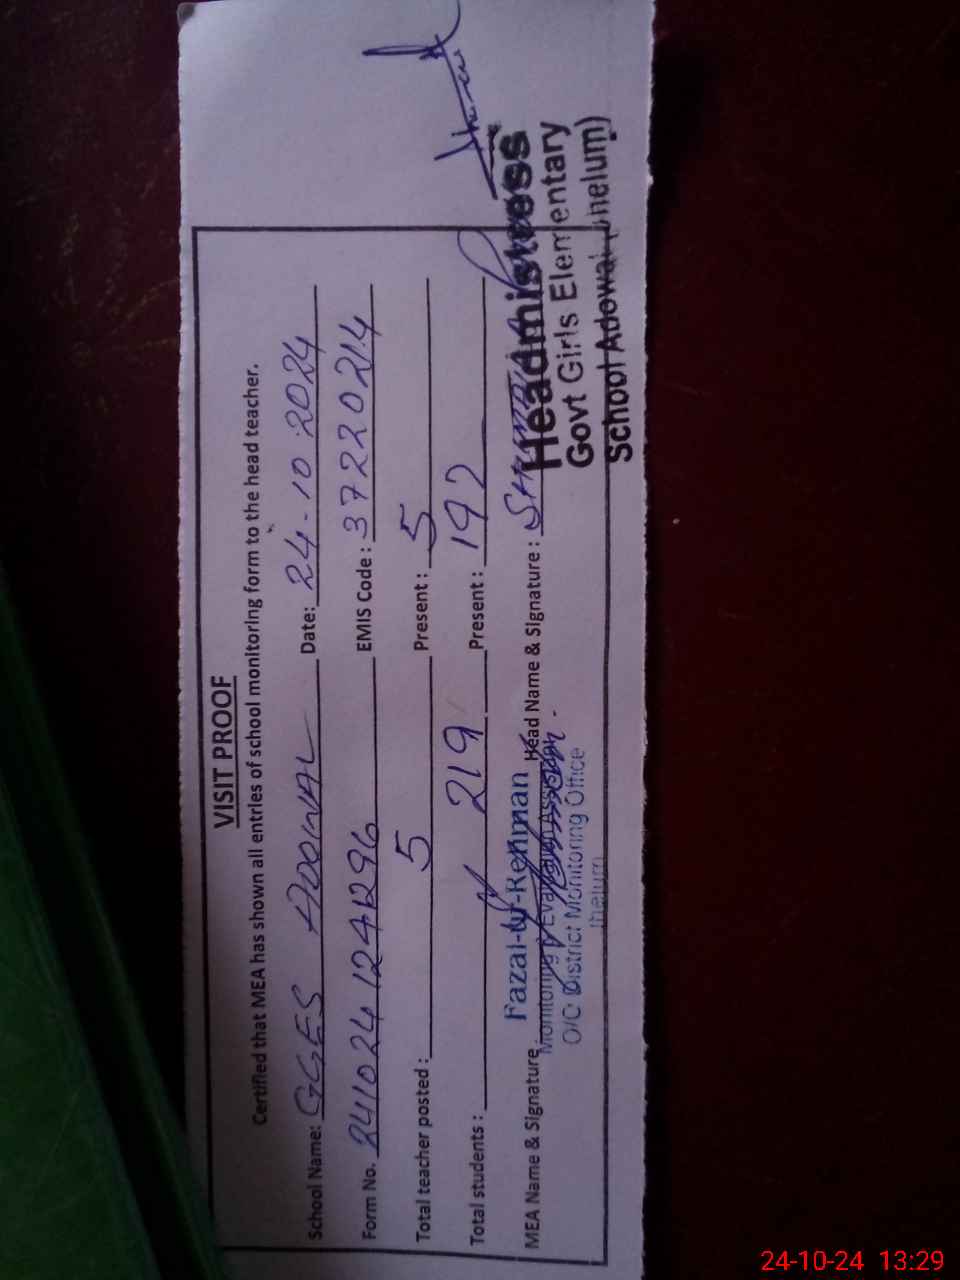 VISIT PROOF
Certified that MEA has shown all entries of school monitoring form to the head teacher.
School Name: GGES ADOWAL Date: 24-10-2024
Form No. 241024124296 EMIS Code: 37220214
Total teacher posted: 5 Present: 5
Total students: 219 Present: 192
MEA Name & Signature Fazal-ur-Rehman Head Name & Signature:
Monitoring & Evaluation Assistant
O/O District Monitoring Office
Jhelum
Headmistress
Govt Girls Elementary
School Adowal (Jhelum)
24-10-24 13:29